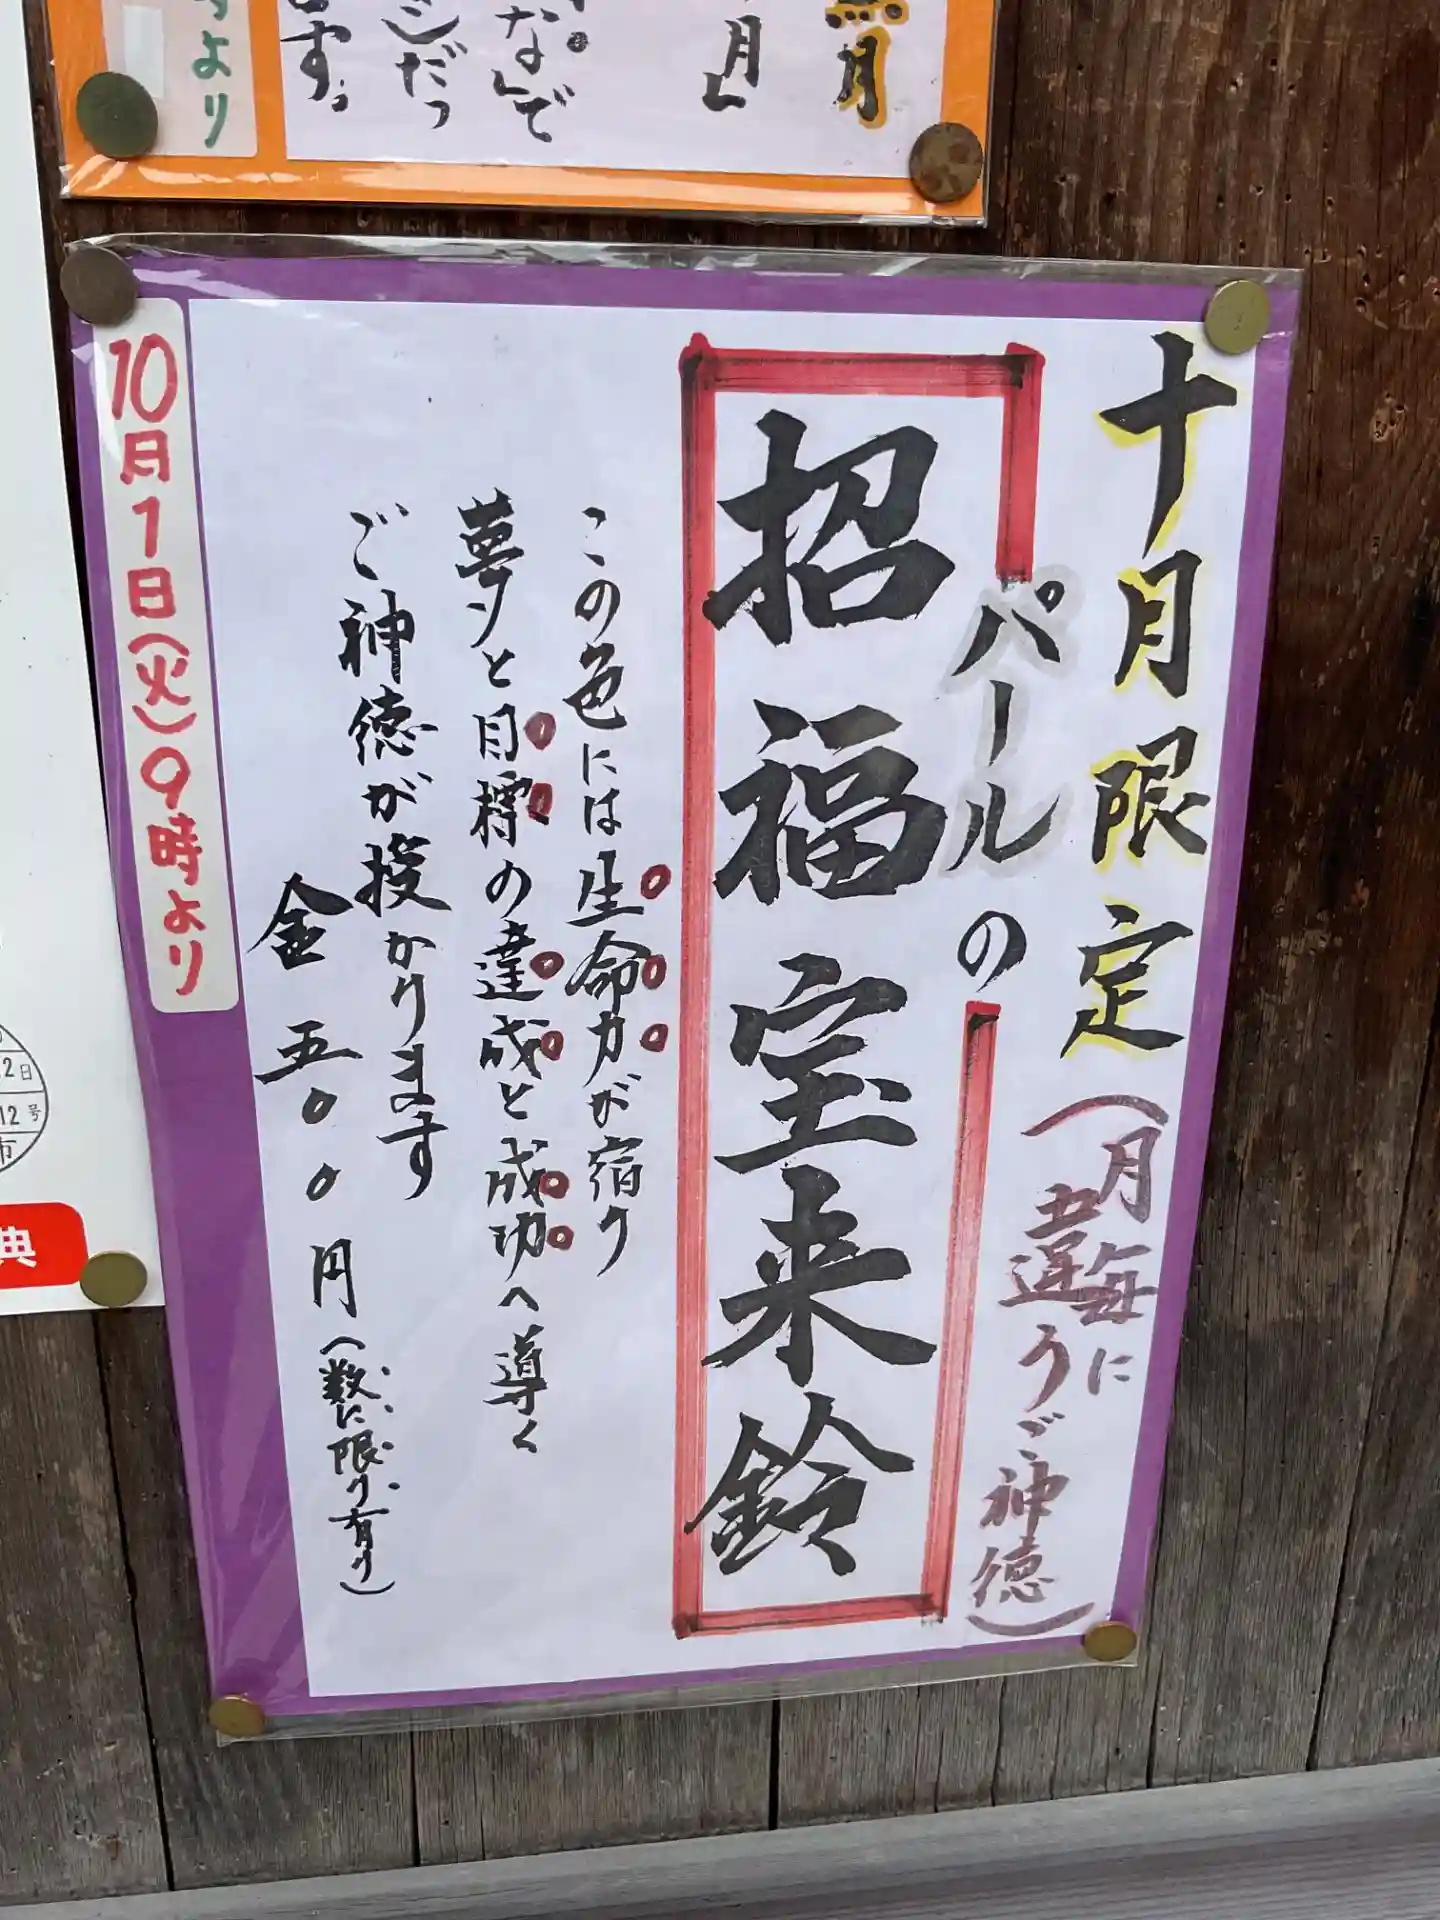 黒月
月」
なで
だっ
ます。
より
十月限定
(月毎に
違うご神徳)
パールの
招福宝来鈴
この色には生命力が宿り
夢と目標の達成と成功へ導く
ご神徳が授かります
金五〇〇円(数に限り有り)
10月1日(火)9時より
2日
12号
市
典